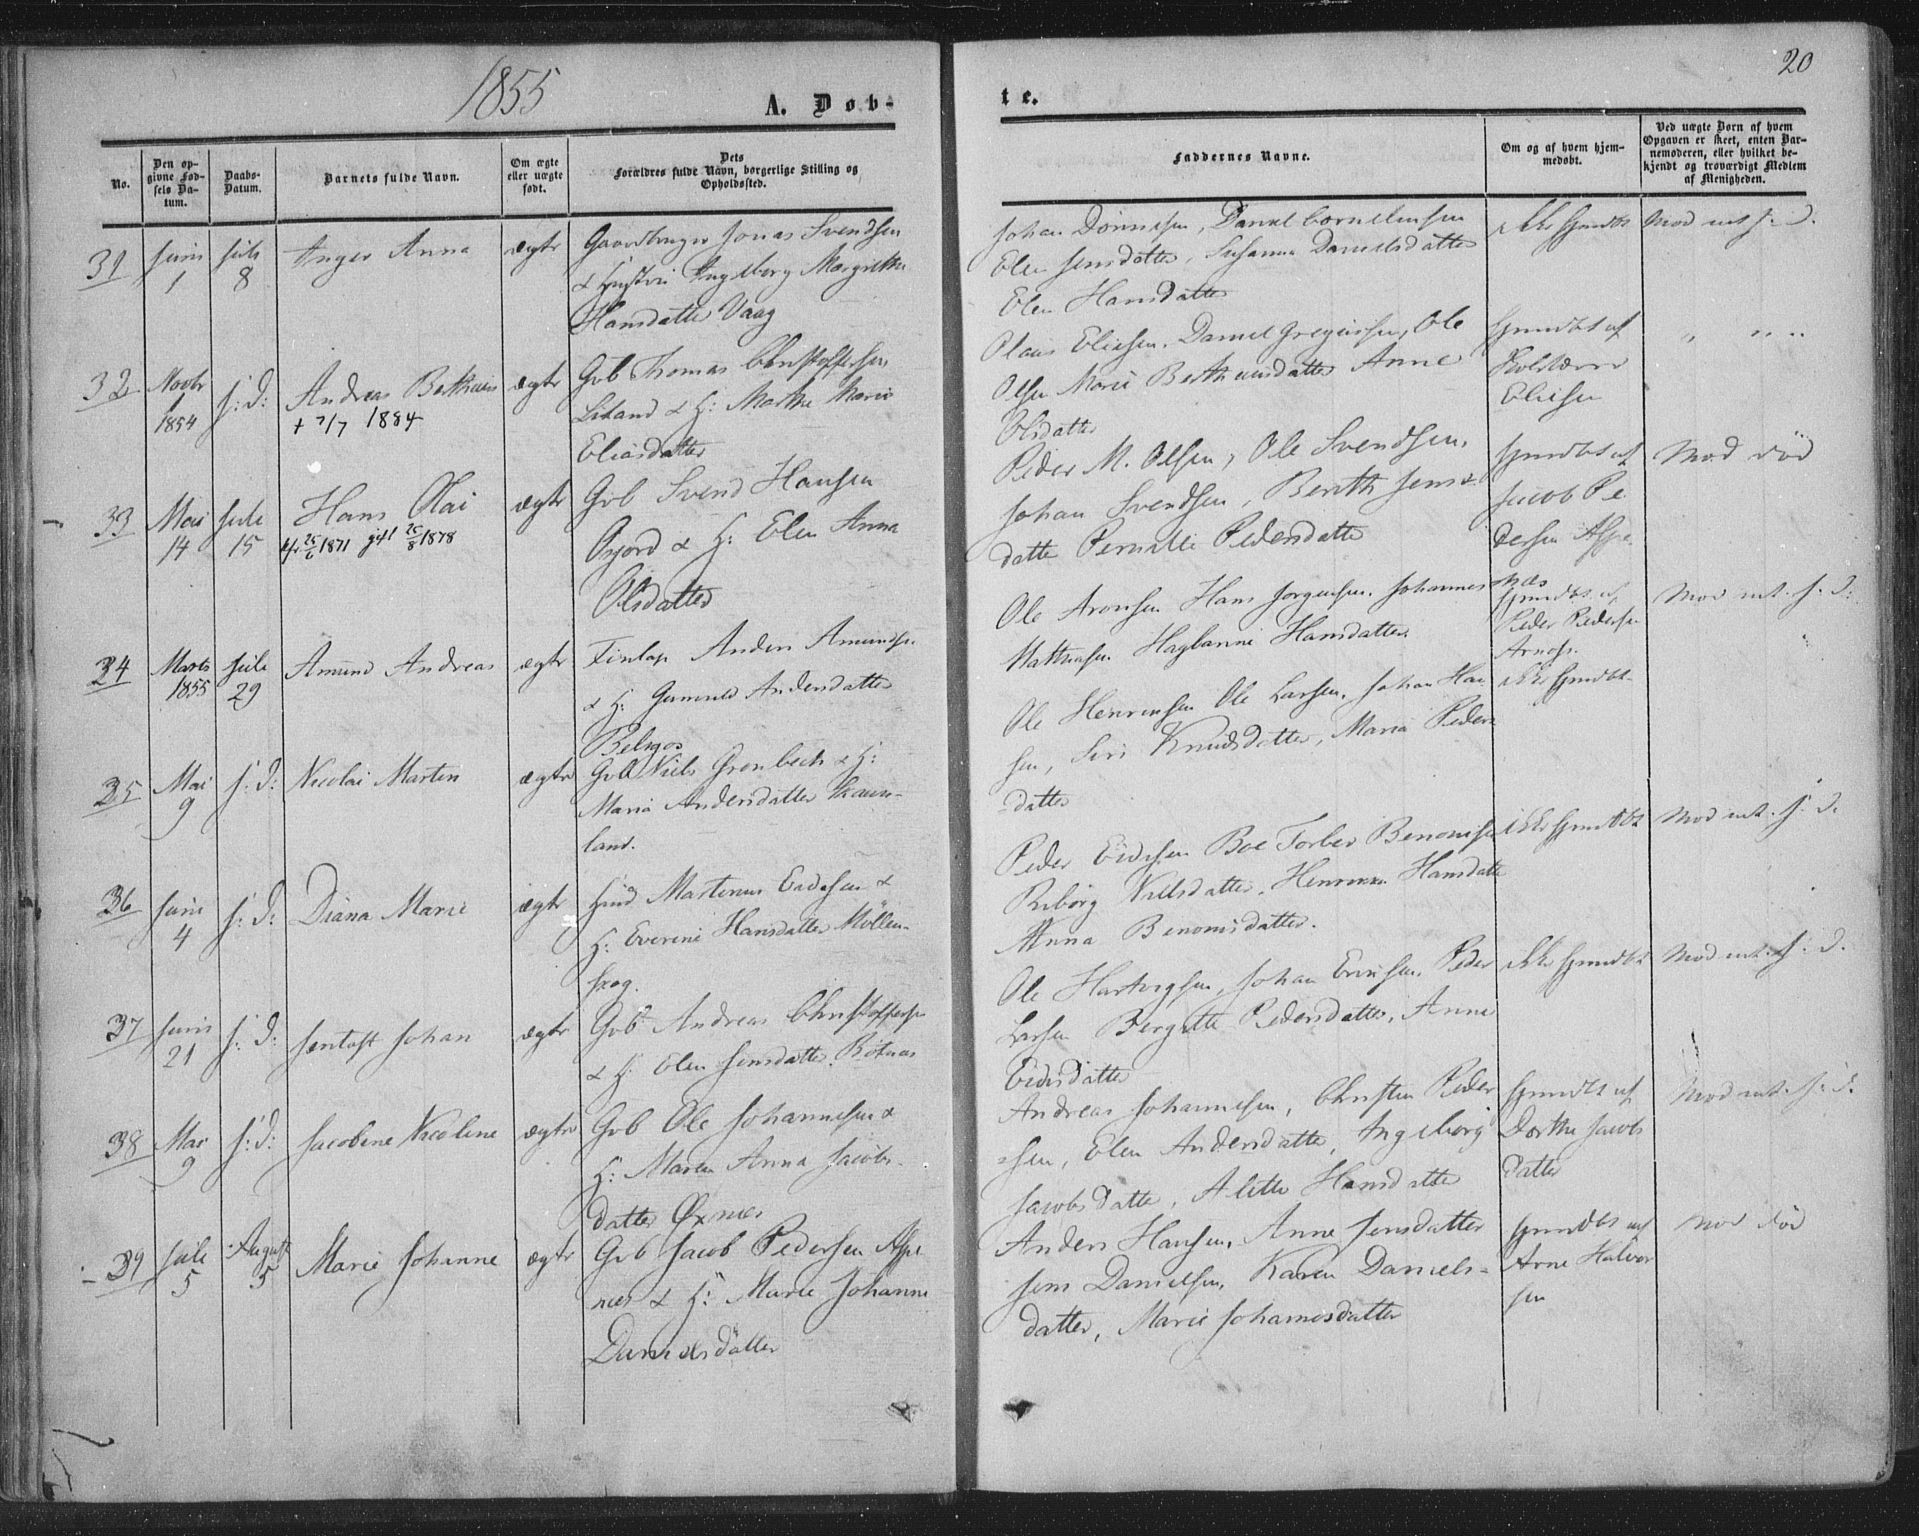 1855
A. Døb-
te.
20
No.
Den op-
givne Fød-
sels Da-
tum.
Daabs-
Datum.
Barnets fulde Navn.
Om ægte
eller uægte
født.
Dets
Forældres fulde Navn, borgerlige Stilling og
Opholdssted.
Faddernes Navne.
Om og af hvem hjem-
medøbt.
Ved uægte Børn af hvem
Opgaven er skeet, enten Bar-
nemoderen, eller hvilket be-
kjendt og troværdigt Medlem
af Menigheden.
31 Juni 1 Juli 8 Inger Anna ægte
Gaardbruger Jonas Svendsen
& Hustru Ingeborg Margrethe
Hansdatter Vaag
Johan Dønnesen, Daniel Corneliussen
Elen Jensdatter, Susanna Danielsdatter
Elen Hansdatter
ikke hjmdbt
32 Novbr 1 1854 s: D: Andreas Bertheus ægte
+ 7/7 1884
Gvb Thomas Christoffersen
Liland & H: Marthe Marie
Eliasdatter
Olaus Eliasen, Daniel Gregusen, Ole
Olsen Marie Bertheusdatter Anne
Olsdatter
hjmdbt af
Eliesen
33 Mai 14 Juli 15 Hans Olai ægte
kfr. 25/6 1871 gift 25/8 1878
Gvb Svend Hansen
Osjord & H: Elen Anna
Olsdatter
Peder M. Olsen, Ole Svendsen,
Johan Svendsen, Berith Jens-
datter Pernille Pedersdatter
hjmdbt af
Jacob Pe
dersen Aspe-
næs
Mod død
34 Marts 1855 Juli 29 Amund Andreas ægte
Finlap Anders Amundsn.
& H: Gunneld Andersdatter
Ole Aronsen Hans Jørgensen, Johannes
Mathisen Hansdatter
hjmdbt af
Peder Peders
35 Mai 9 s: D: Nicolai Marten ægte
Gvb Niels Grønbech & H:
Maria Andersdatter
land.
Ole Larsen, Johan Han
sen, Siri Knudsdatter, Maria Peders
datter
ikke hjmdbt
36 Juni 4 s: D: Diana Marie ægte
Hmd Martinus Endresen &
H: Everine Hansdatter Møllen-
skog.
Peder Boe Torber Benonisen
Riborg Nielsdatter, Hansdatter
Anna Benonisdatter.
ikke hjmdbt
37 Juni 21 s: D: Jentoft Johan ægte
Gvb Andreas Christoffersn
& H: Elen Jensdatter
Ole Hartvigsen, Johan Peder
Larsen Bergitte Pedersdatter, Anne
ikke hjmdbt
38 Mai 9 s: D: Jacobine Nicoline ægte
Gvb Ole Johannesen &
H: Maren Anna Jacobs-
datter Øxnes
Andreas Johannesen, Christen Peder
sen, Elen Andersdatter, Ingeborg
Jacobsdatter, Alette Hansdatter
hjmdbt af
Dorthe Jacobs
datter
39 Juli 5 August 5 Marie Johanne ægte
Gvb Jacob Pedersen Aspe
næs & H: Marie Johanne
Danielsdatter
Anders Hansen, Anne Jensdatter
Jens Danielsen, Karen Daniels-
datter, Marie Johannesdatter
hjmdbt af
Arne Halvor
sen
Mod død